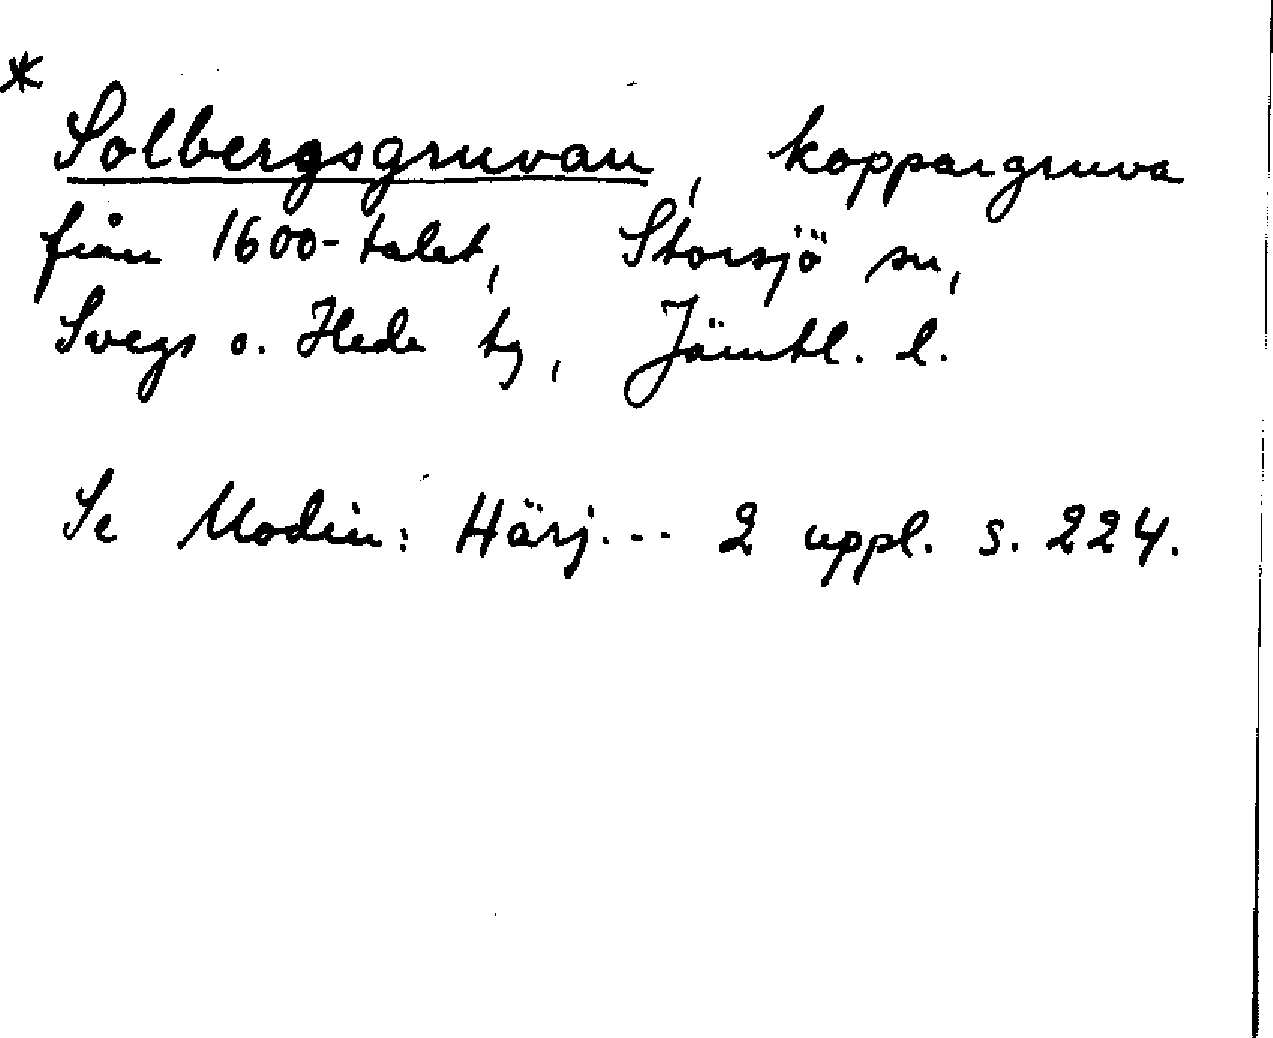 *
Solbergsgruvan, koppargruva
från 1600-talet, Storsjö sn,
Svegs o. Hede tg, Jämtl. l.
Se Modin: Härj... 2 uppl. s. 224.